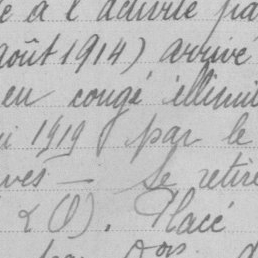 e à l'activité pa
août 1914) arrivé
en congé illimi
1919 par le
ves — se retire
& (O). Placé